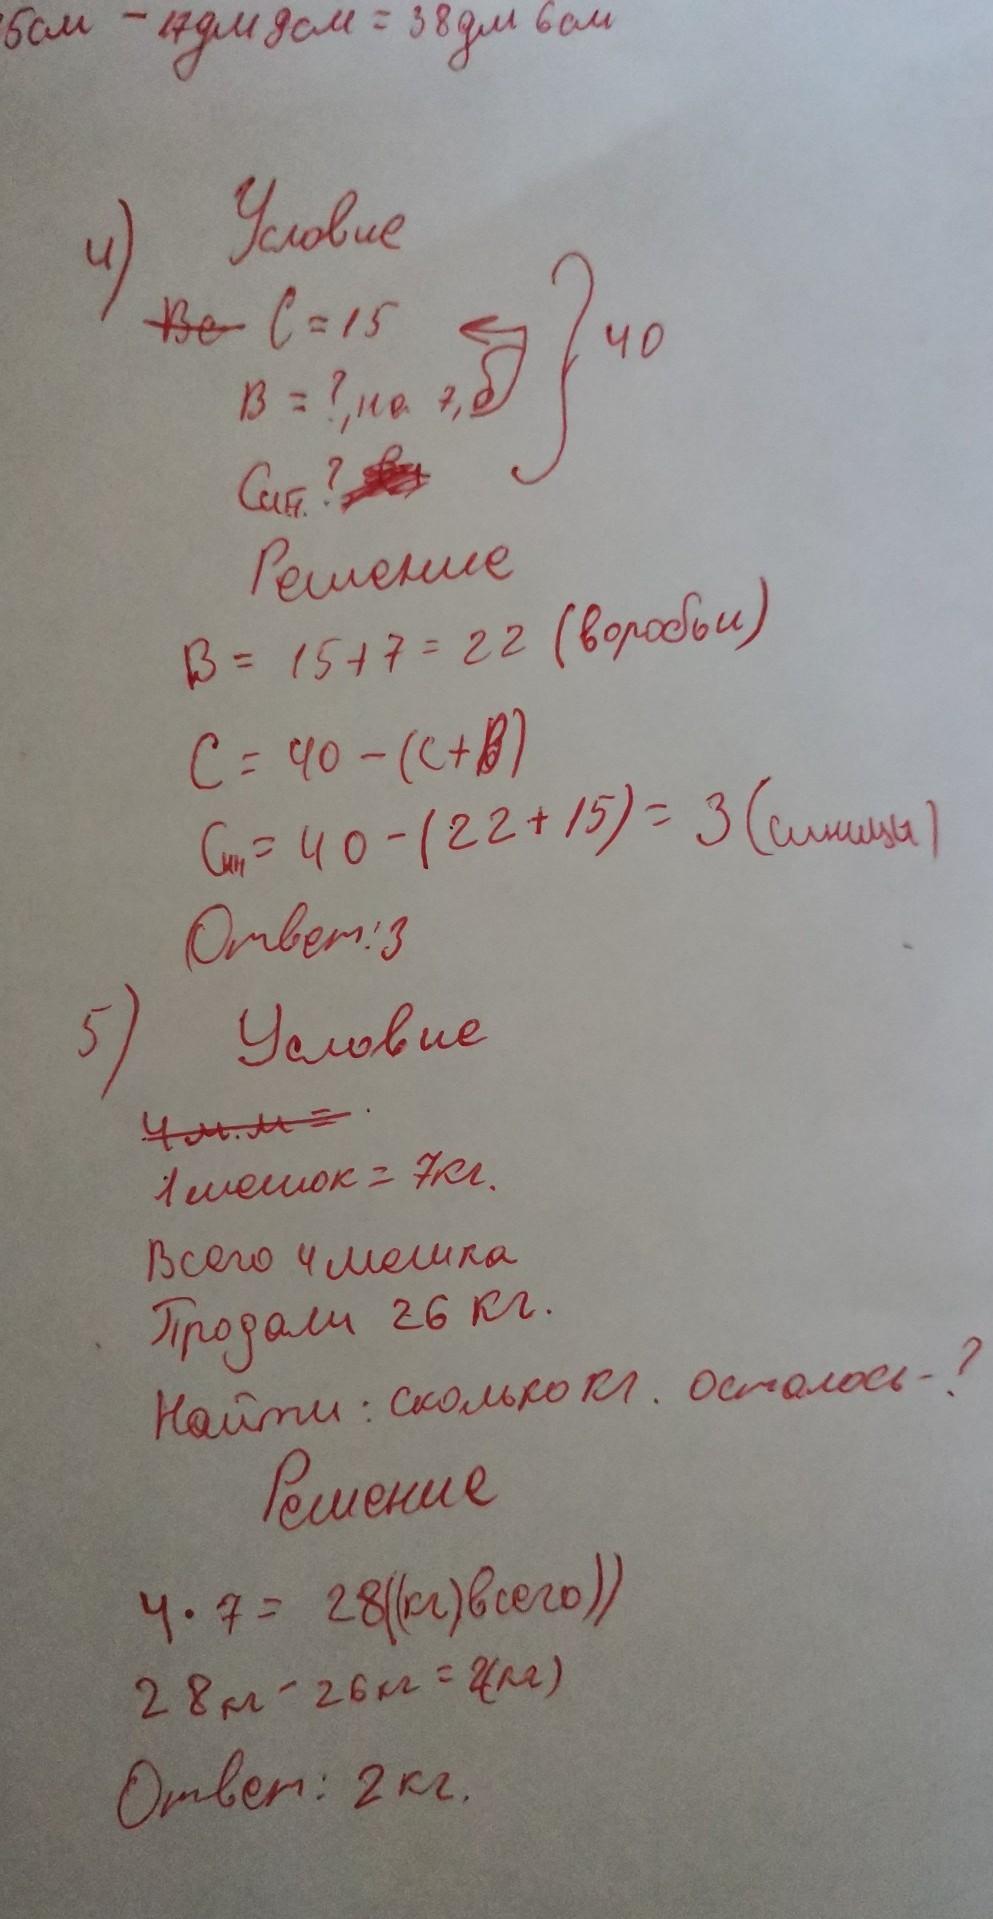 5см - 17дм 9см = 38дм 6см
4) Условие
Во С = 15
В = ?, на 7, б } 40
Син. ?
Решение
В = 15+7 = 22 (воробьи)
С = 40 - (С+В)
Син = 40 - (22 + 15) = 3 (синицы)
Ответ: 3
5) Условие
4 м. м =
1 мешок = 7кг.
Всего 4 мешка
Продали 26 кг.
Найти: сколько кг. осталось - ?
Решение
4 · 7 = 28((кг)всего))
28кг - 26кг = 2(кг)
Ответ: 2 кг.